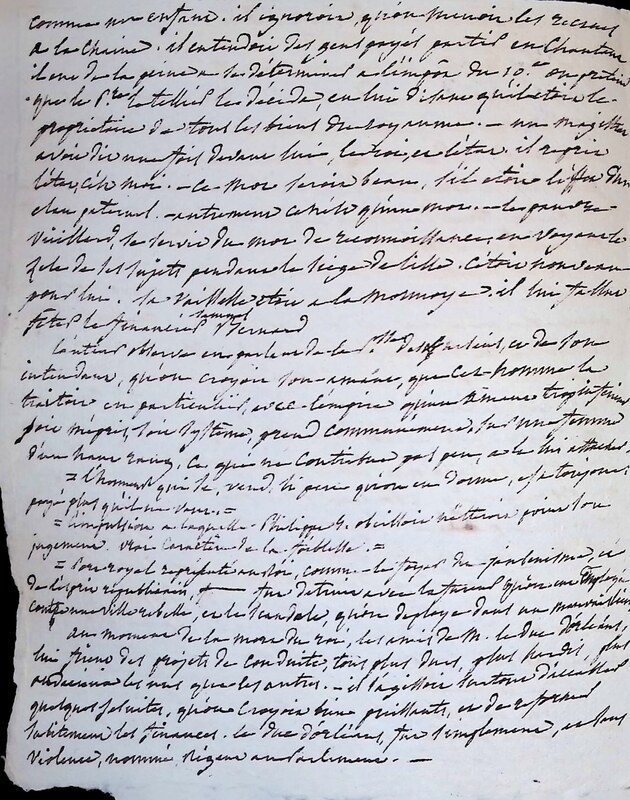 comme un enfant. il ignoroit, qu'on menoit les recrues
a la chaine. il entendoit des gens payés partir en chantant
il eut de la peine a se déterminer a l'impôt du 10.e on prétend
que le P.re le tellier le décida, en lui disant qu'il etoit le
proprietaire de tous les biens du royaume. — un magistrat
avoit dit une fois devant lui, le roi, et l'état. il reprit
l'état, c'est moi. — ce mot seroit beau, s'il etoit l'effet d'un
elan paternel. — autrement ce n'est qu'un mot. — le pauvre
vieillard, se servit du mot de reconnoissance, en voyant le
zele de ses sujets pendant le siege de lille. c'étoit nouveau
pour lui. sa vaisselle etoit a la monnoye. il lui fallut
fêter le financier samuel Bernard
l'auteur observe en parlant de la P. des ursins, et de son
intendant, qu'on croyoit son amant, que cet homme la
traitoit en particulier, avec l'empire qu'un
soit mépris, soit systême, prend communément, sur une femme
d'un haut rang, ce qui ne contribue pas peu, a le lui attacher.
= l'homme qui se vend, si peu qu'on en donne, est toujours
payé plus qu'il ne vaut. =
= l'impulsion a laquelle Philippe 5. obeissoit n'étoit pour son
jugement. vrai caractère de la foiblesse. =
= Port royal au roi, comme le foyer du jansénisme, et
de l'esprit républicain, fut détruit avec la fureur qu'on employe
contre une ville rebelle, et le scandale, qu'on deploye dans un mauvais lieu
au moment de la mort du roi, les amis de M. le duc d'orléans,
lui firent des projets de conduite, tous plus durs, plus hardis, plus
les uns que les autres. — il s'agissoit surtout d'accabler
quelques jesuites, qu'on croyoit puissants, et de reformer
subitement les finances. le duc d'orléans, fut simplement, et sans
violence, nommé Régent au Parlement. —